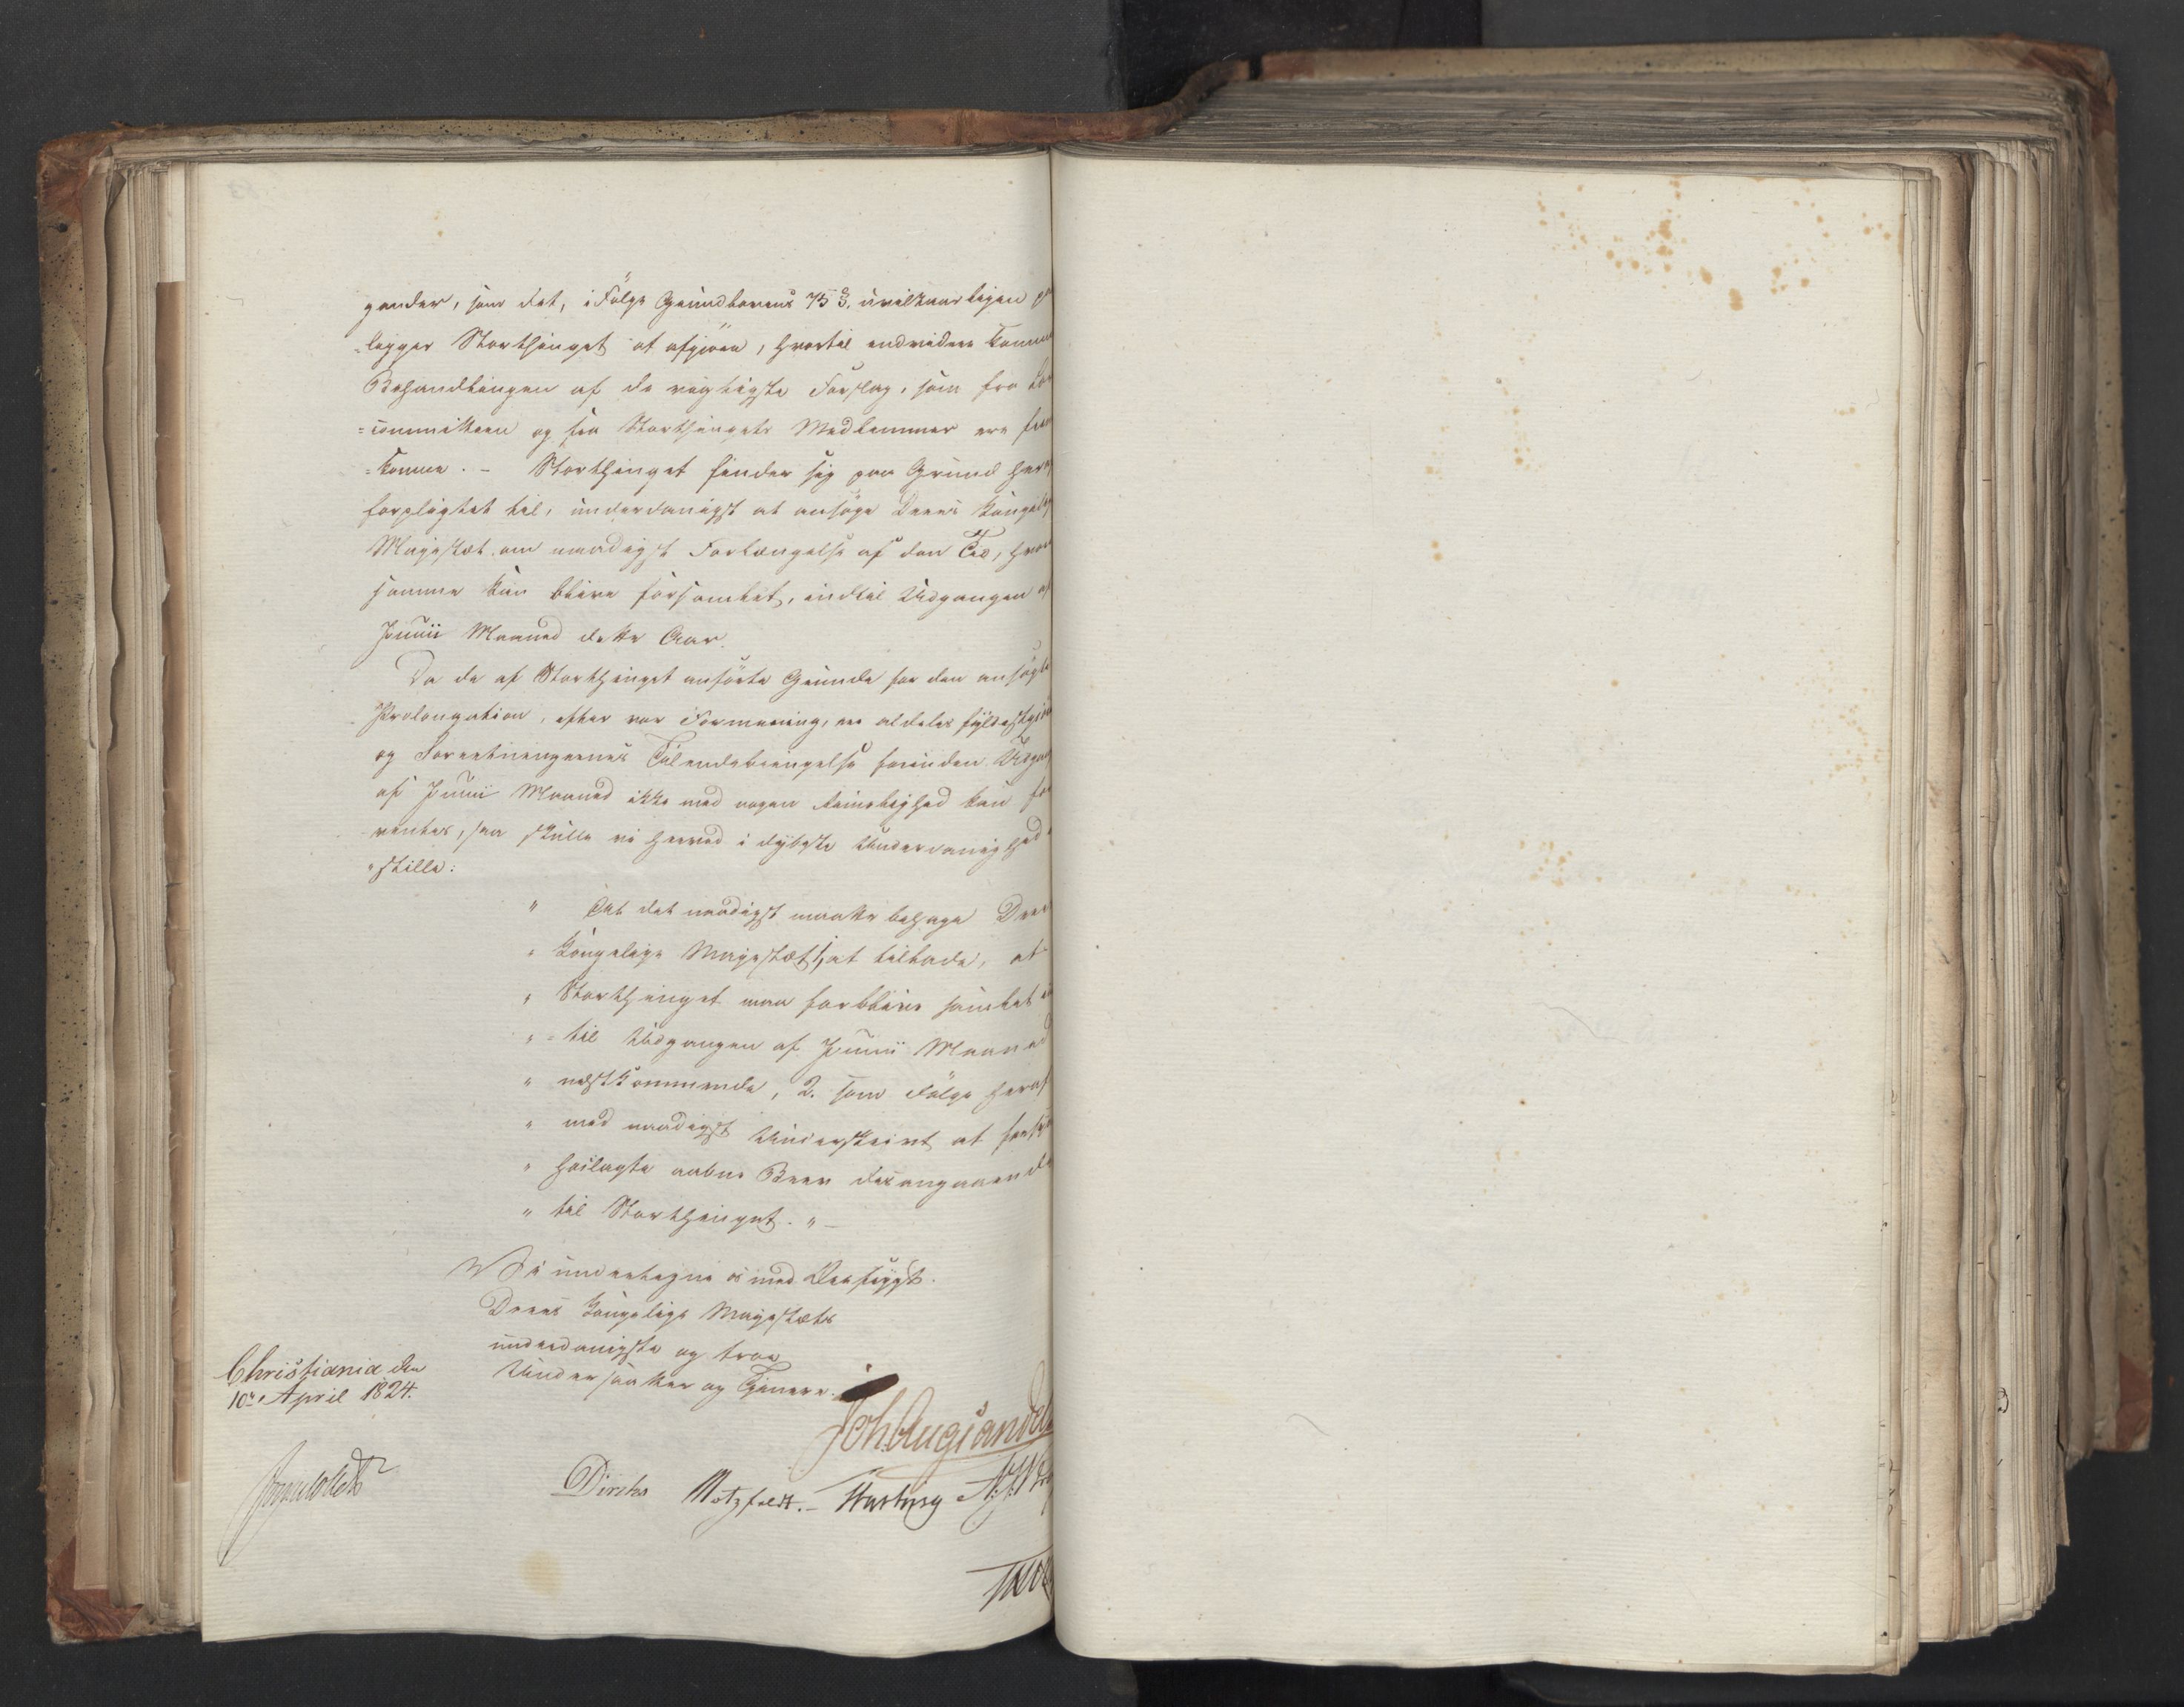 gender, som det, i Følge Grundlovens 75 §. uvilkaarligen
=ligger Storthinget at afgjøre, hvortil endvidere komme
Behandlingen af de vigtigste Forslag, som fra
=committeen og fra Storthingets Medlemmer ere frem
=komne. – Storthinget finder sig paa Grund heraf
forpligtet til, underdanigst at ansøge Deres Kongelige
Majestæt om naadigst Forlængelse af den Tid, hvori
samme kan blive forsamlet, indtil Udgangen af
Junii Maaned dette Aar.
Da de af Storthinget anførte Grunde for den ansøgte
Prolongation, efter vor Formening, ere aldeles fyldestgjø
og Forretningernes Tilendebringelse forinden Udgang
af Junii Maaned ikke med nogen Rimelighed kan for
=ventes, saa skulle vi herved i dybeste Underdanighed
=stille:
" At det naadigst maatte behage Deres
" Kongelige Majestæt 1, at tillade, at
" Storthinget maa forblive samlet ind
" =til Udgangen af Junii Maaned
" næstkommende, 2. som Følge heraf
" med naadigst Underskrivt at forsyne
" hoslagte aabne Brev desangaaende
" til Storthinget. " –
Vi undertegne os med Devsigt.
Deres Kongelige Majestæts
underdanigste og troe
Undersaatter og Tjenere.
Christiania den
10de April 1824.
Joh. Aug. Sandels
Diriks Motzfeldt. – Hartvig